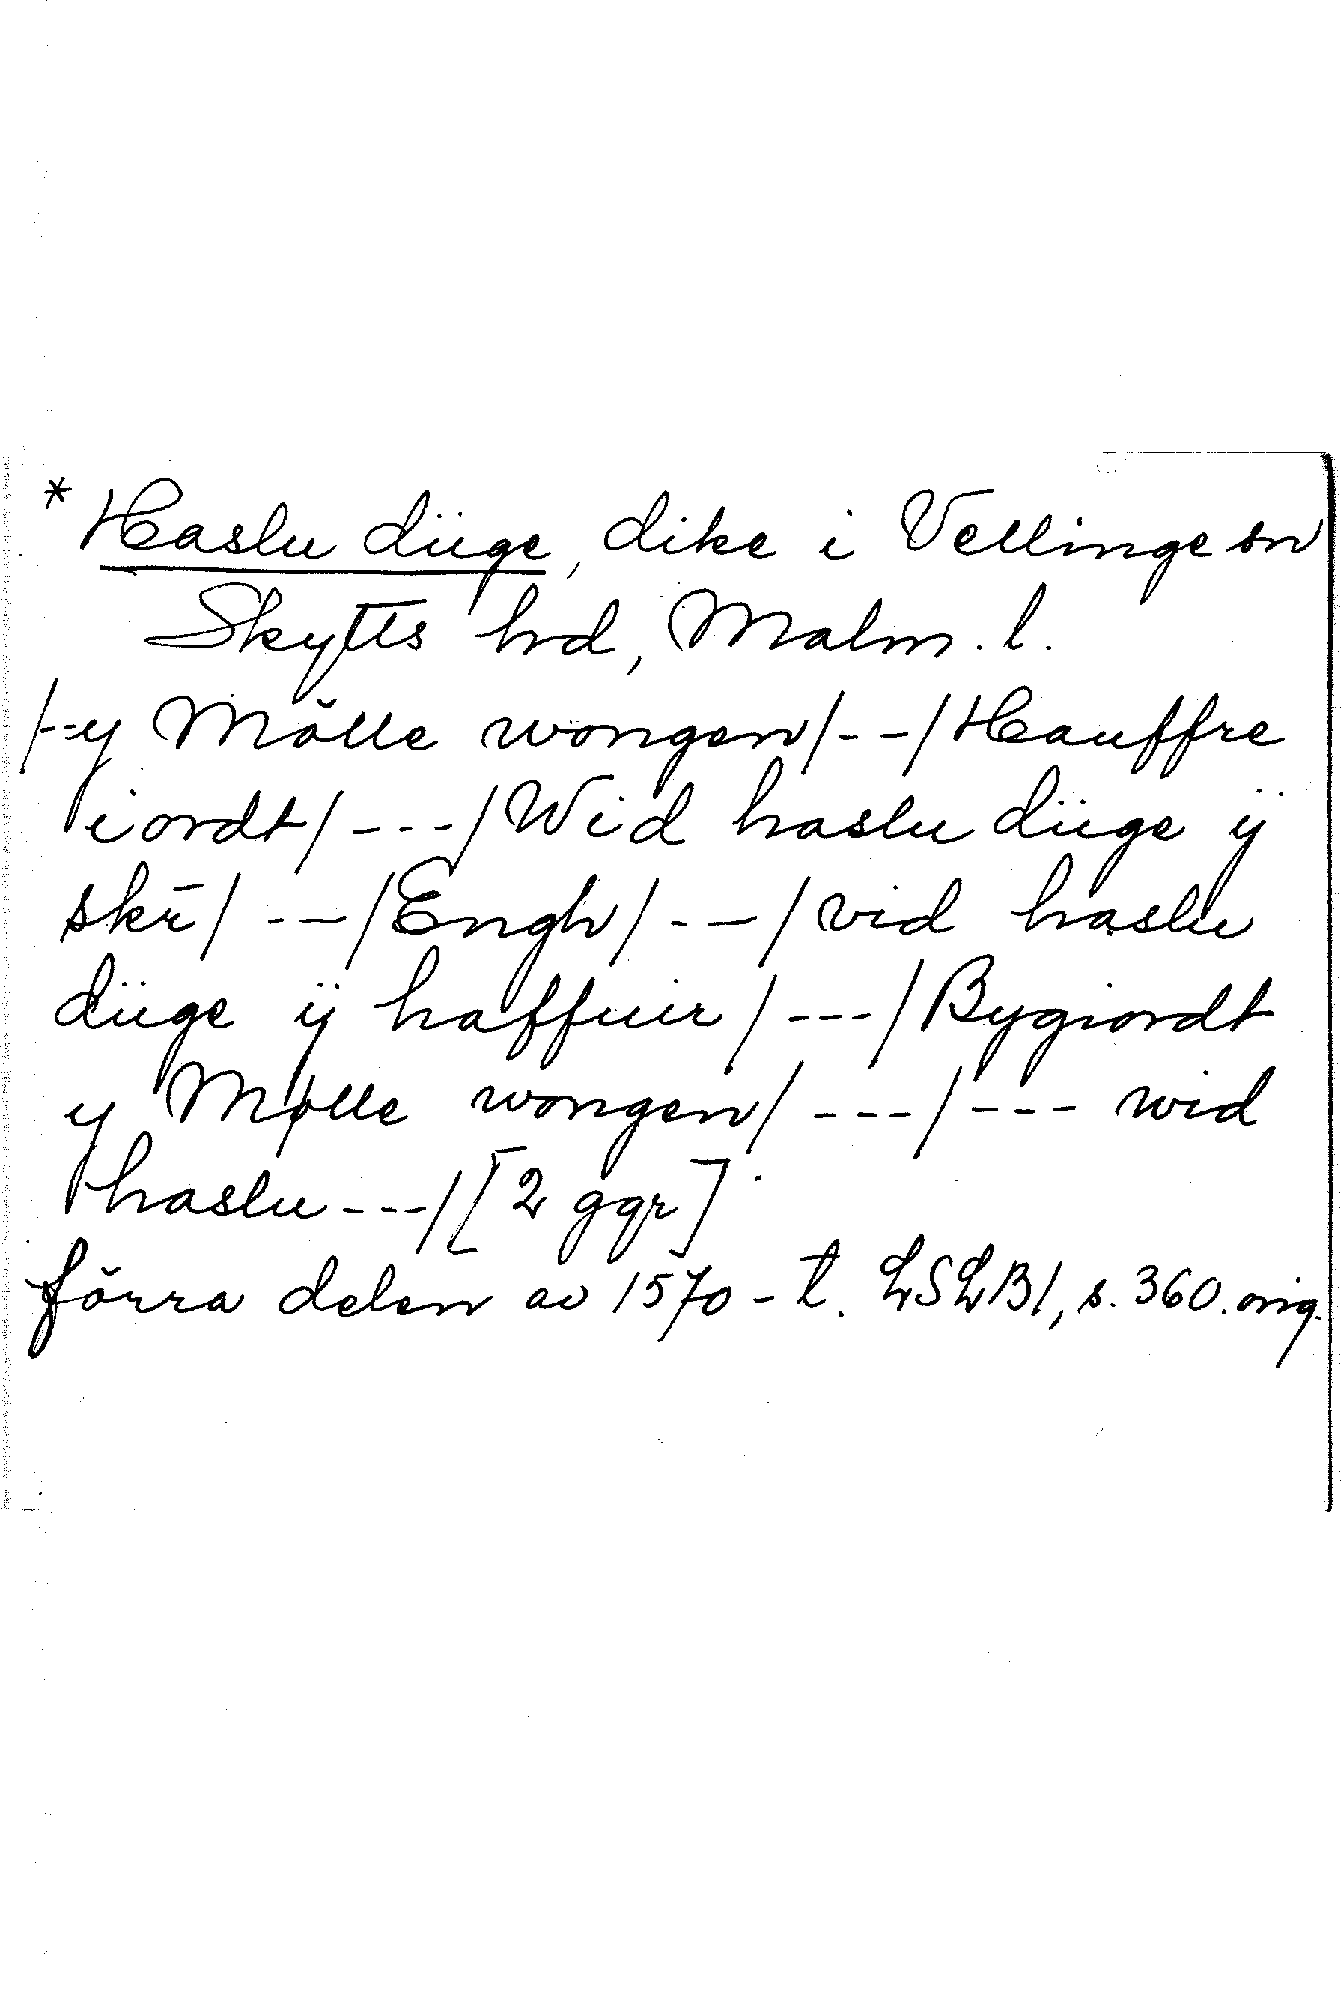 * Haslu düge, dike i Vellinge sn
Skytts hd, Malm. l.
/--y Mölle wongen/---/Hauffre
iordt/---/Wid haslu düge ÿ
skr̄/---/Engh/---/vid haslu
düge ÿ haffuer/---/Bygiordt
y Mølle wongen/---/--- wid
haslu---/[2 ggr].
förra delen av 1570-t. LSLB1, s. 360. orig.